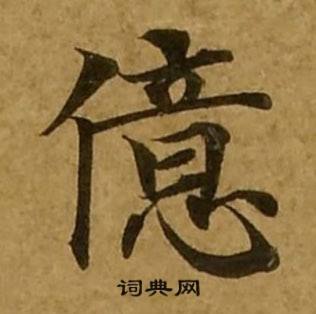 億
词典网